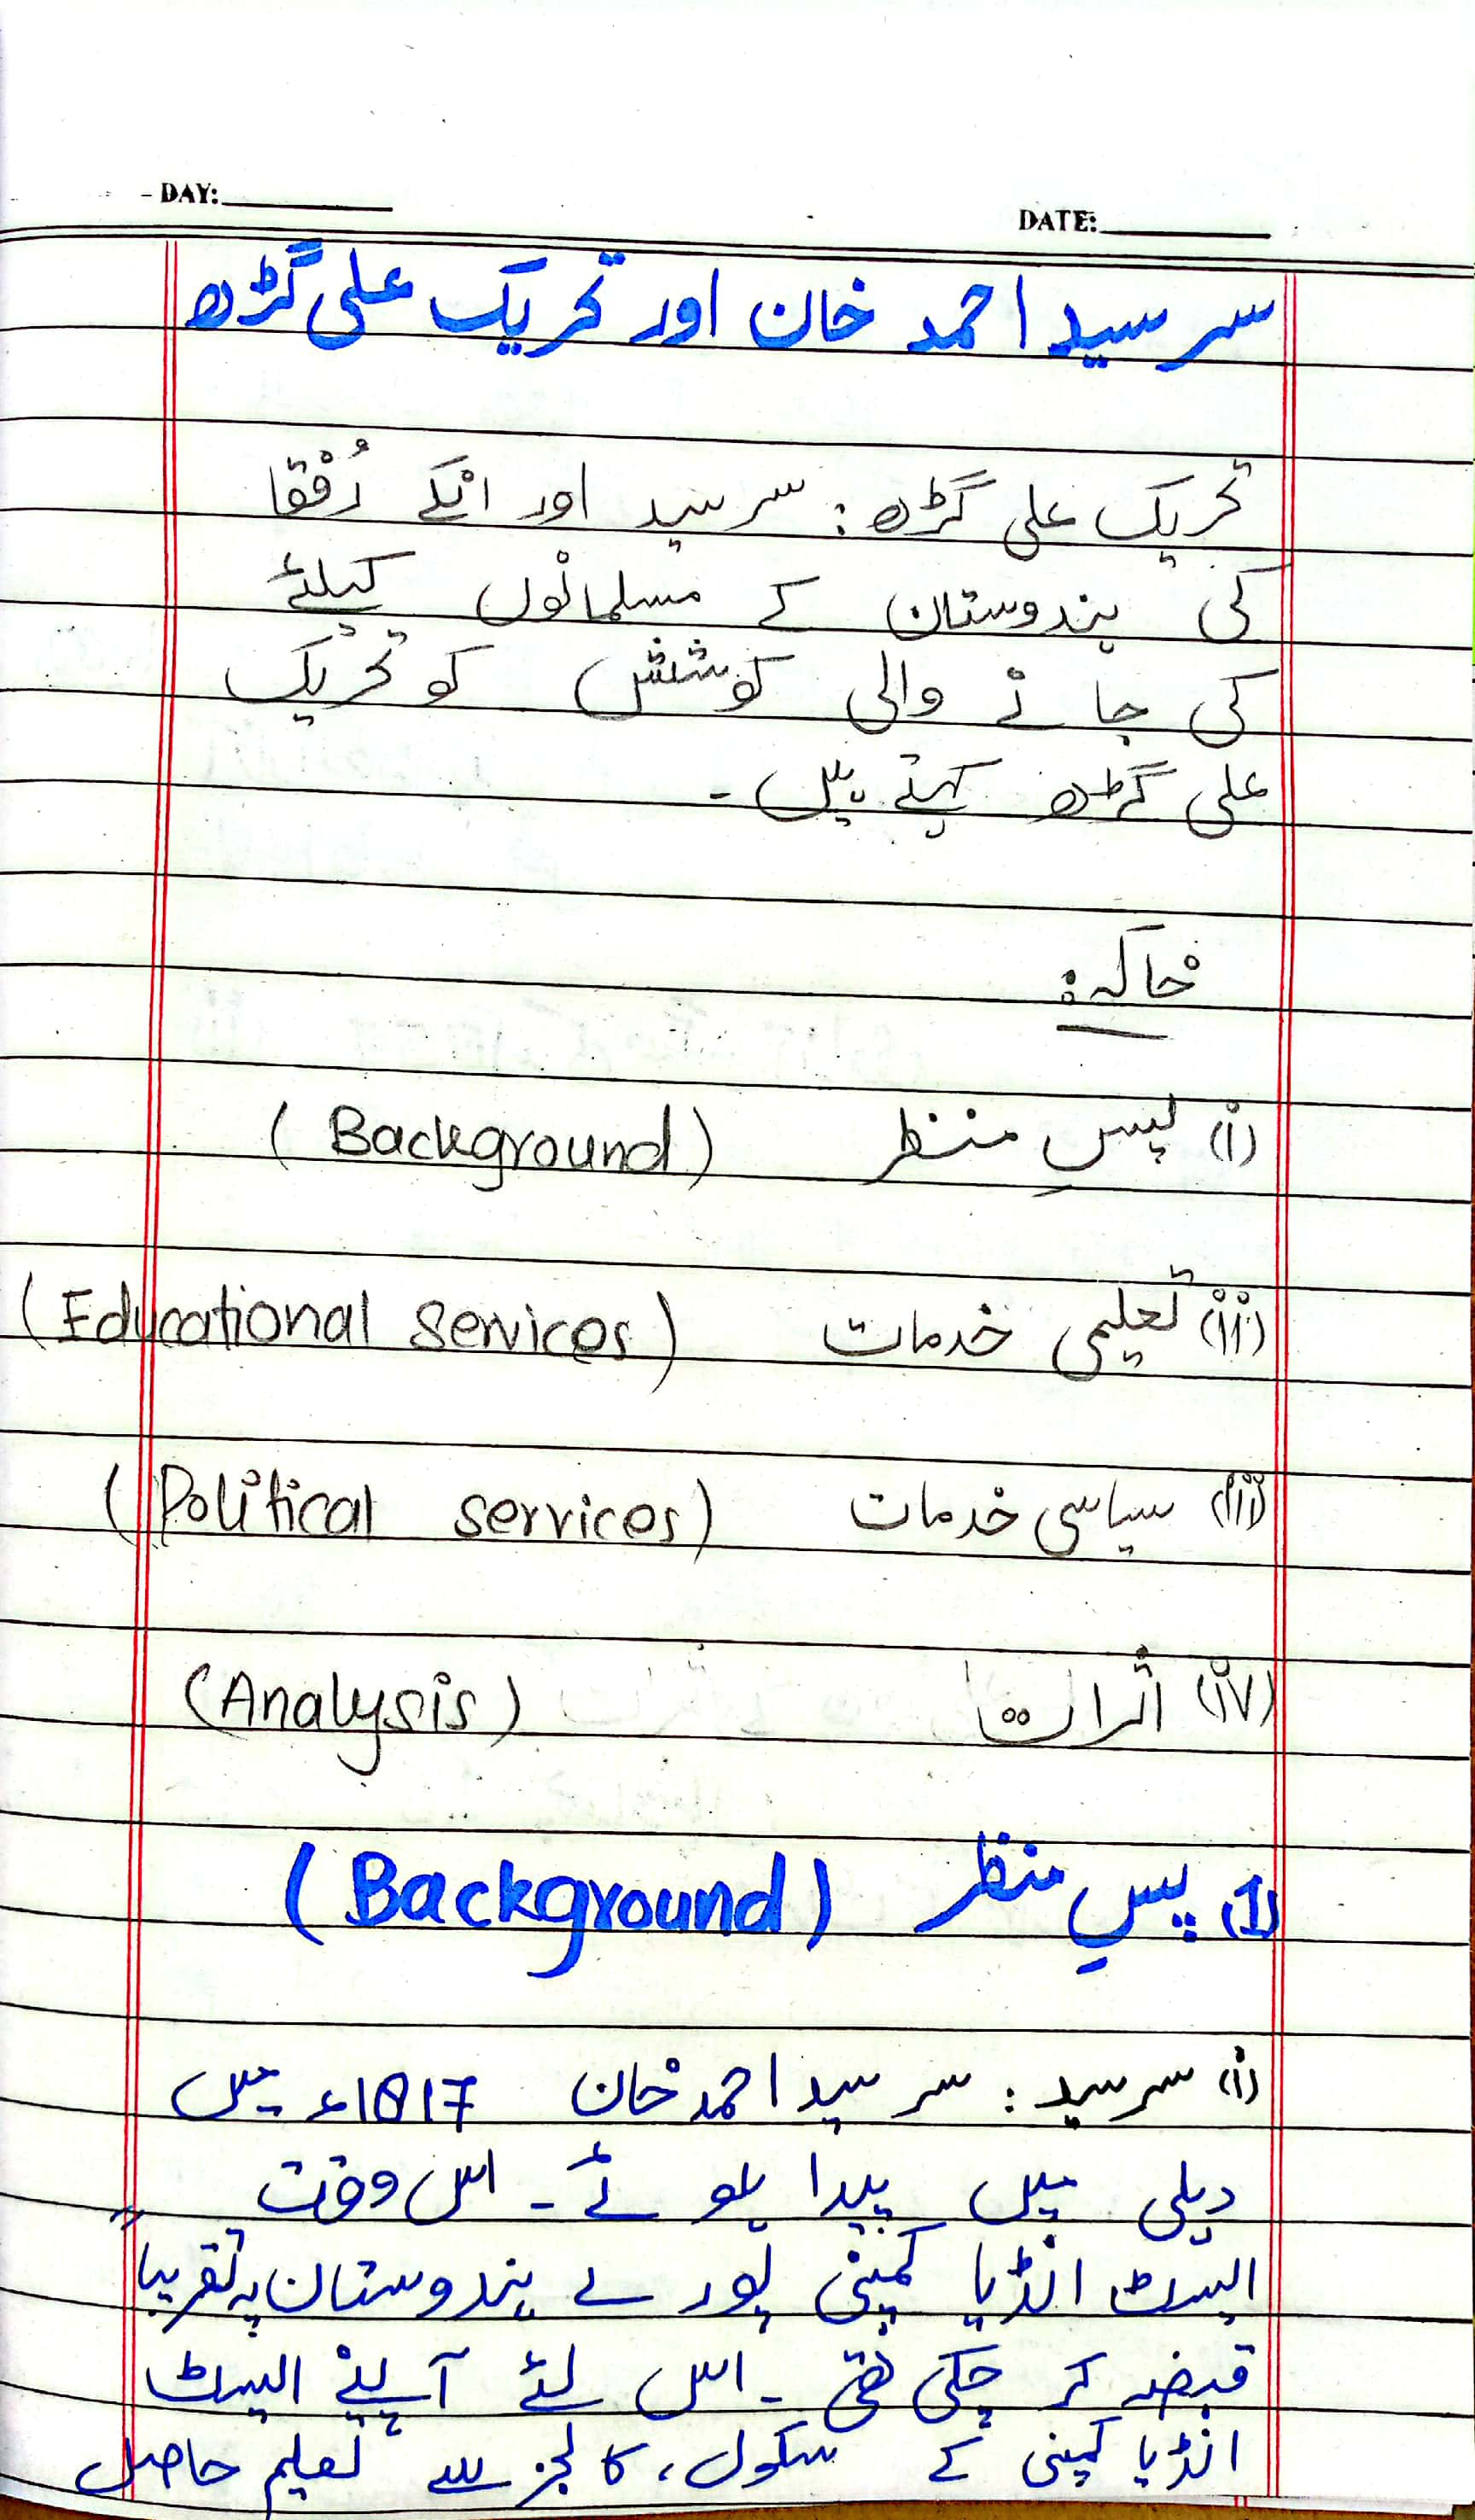 DAY:
DATE:
سر سید احمد خان اور تحریک علی گڑھ
تحریک علی گڑھ: سر سید اور انکے رُفقا
کی ہندوستان کے مسلمانوں کیلئے
کی جانے والی کوشش کو تحریک
علی گڑھ کہتے ہیں۔
خاکہ:
(i) پسِ منظر (Background)
(ii) تعلیمی خدمات (Educational Services)
(iii) سیاسی خدمات (Political services)
(iv) اثرات (Analysis)
(1) پسِ منظر (Background)
(i) سر سید: سر سید احمد خان 1817ء میں
دہلی میں پیدا ہوئے۔ اس وقت
ایسٹ انڈیا کمپنی پورے ہندوستان پہ تقریباً
قبضہ کر چکی تھی۔ اس لئے آپنے ایسٹ
انڈیا کمپنی کے سکول، کالجز سے تعلیم حاصل